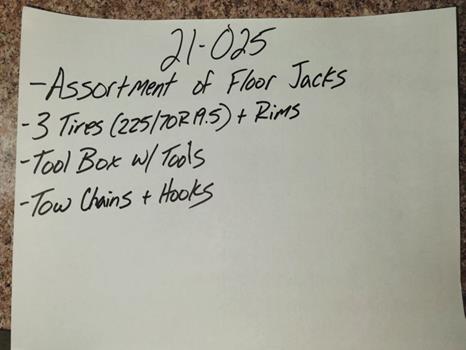 21-025
-Assortment of Floor Jacks
-3 Tires (225/70R19.5) + Rims
-Tool Box w/ Tools
-Tow Chains + Hooks